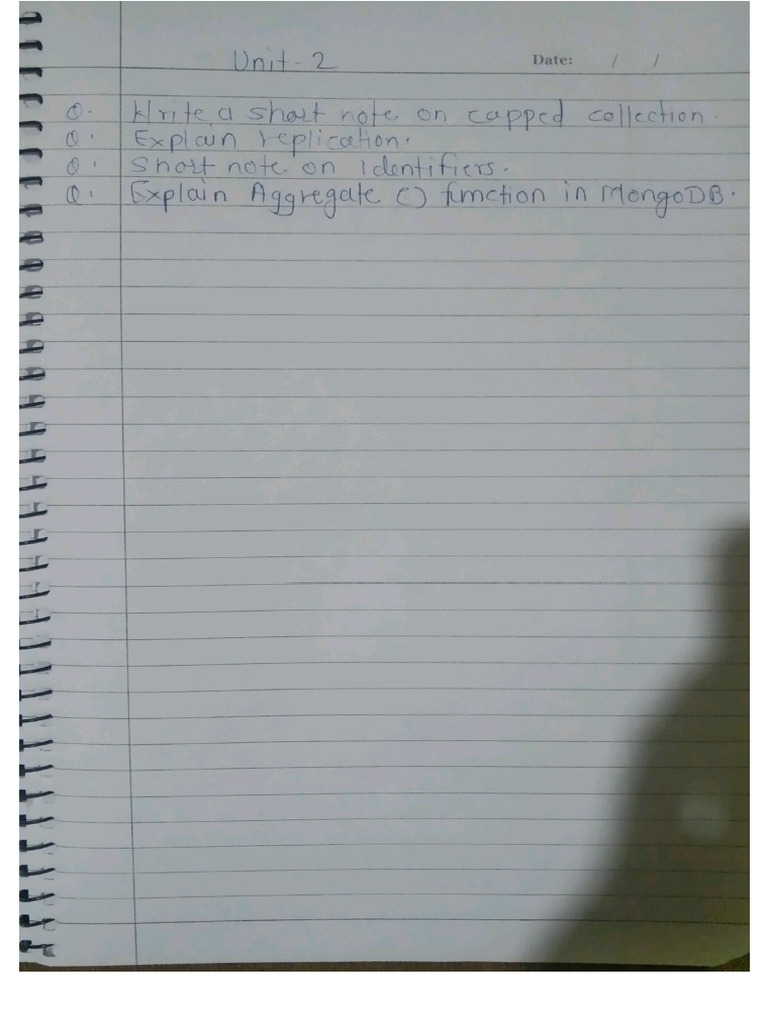 Unit-2
Date: / /
Q. Write a short note on capped collection.
Q. Explain replication.
Q. Short note on identifiers.
Q. Explain Aggregate () function in MongoDB.